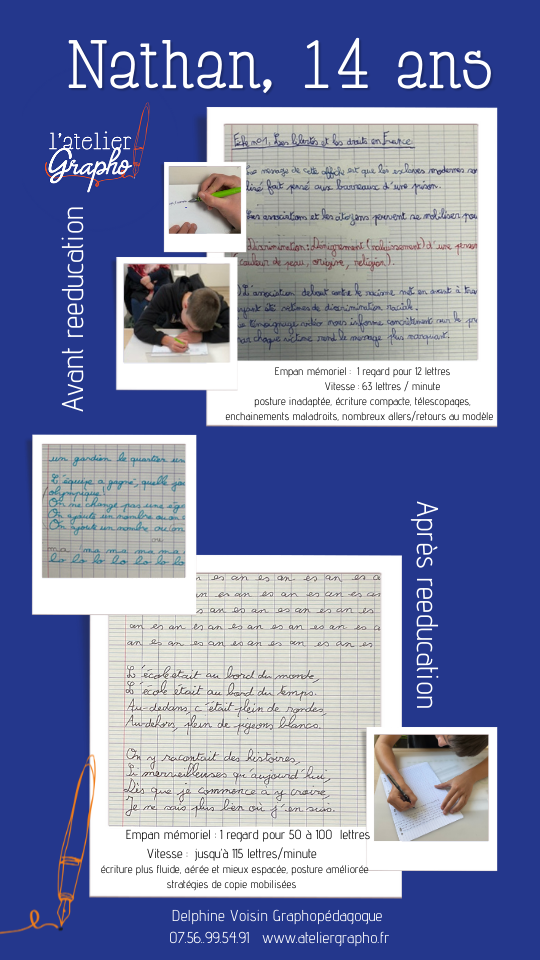 Nathan, 14 ans
l'atelier
Grapho
Avant reeducation
Les libertés et les droits en France
Le message de cette affiche est que les esclaves modernes
fait pensé aux barreaux d'une prison.
Les associations et les citoyens peuvent se mobiliser
Discrimination: Dénigrement (rabaissement) d'une
couleur de peau, origine, religion).
L'association debout contre le racisme met en avant à
ayant été victimes de discrimination raciale.
témoignage vidéo nous informe concrètement sur le
chaque victime rend le message plus marquant.
Empan mémoriel : 1 regard pour 12 lettres
Vitesse : 63 lettres / minute
posture inadaptée, écriture compacte, télescopages,
enchainements maladroits, nombreux allers/retours au modèle
un gardien le quartier un
L'équipe a gagné, quelle
olympique!
On ne change pas une
On ajoute un nombre ou on
On ajoute un nombre ou on
ou
ma ma ma ma ma
lo lo lo lo lo lo lo
Après reeducation
es an es an es an es
es an es an es an es
es an es an es an es
an es an es an es an es an es
an es an es an es an es an es
L'école était au bord du monde,
L'école était au bord du temps.
Au-dedans, c'était plein de rondes,
Au-dehors, plein de pigeons blancs.
On y racontait des histoires,
Si merveilleuses qu'aujourd'hui,
Dès que je commence a y croire,
Je ne sais plus bien où j'en suis.
Empan mémoriel : 1 regard pour 50 à 100 lettres
Vitesse : jusqu'à 115 lettres/minute
écriture plus fluide, aérée et mieux espacée, posture améliorée
stratégies de copie mobilisées
Delphine Voisin Graphopédagogue
07.56.99.54.91 www.ateliergrapho.fr